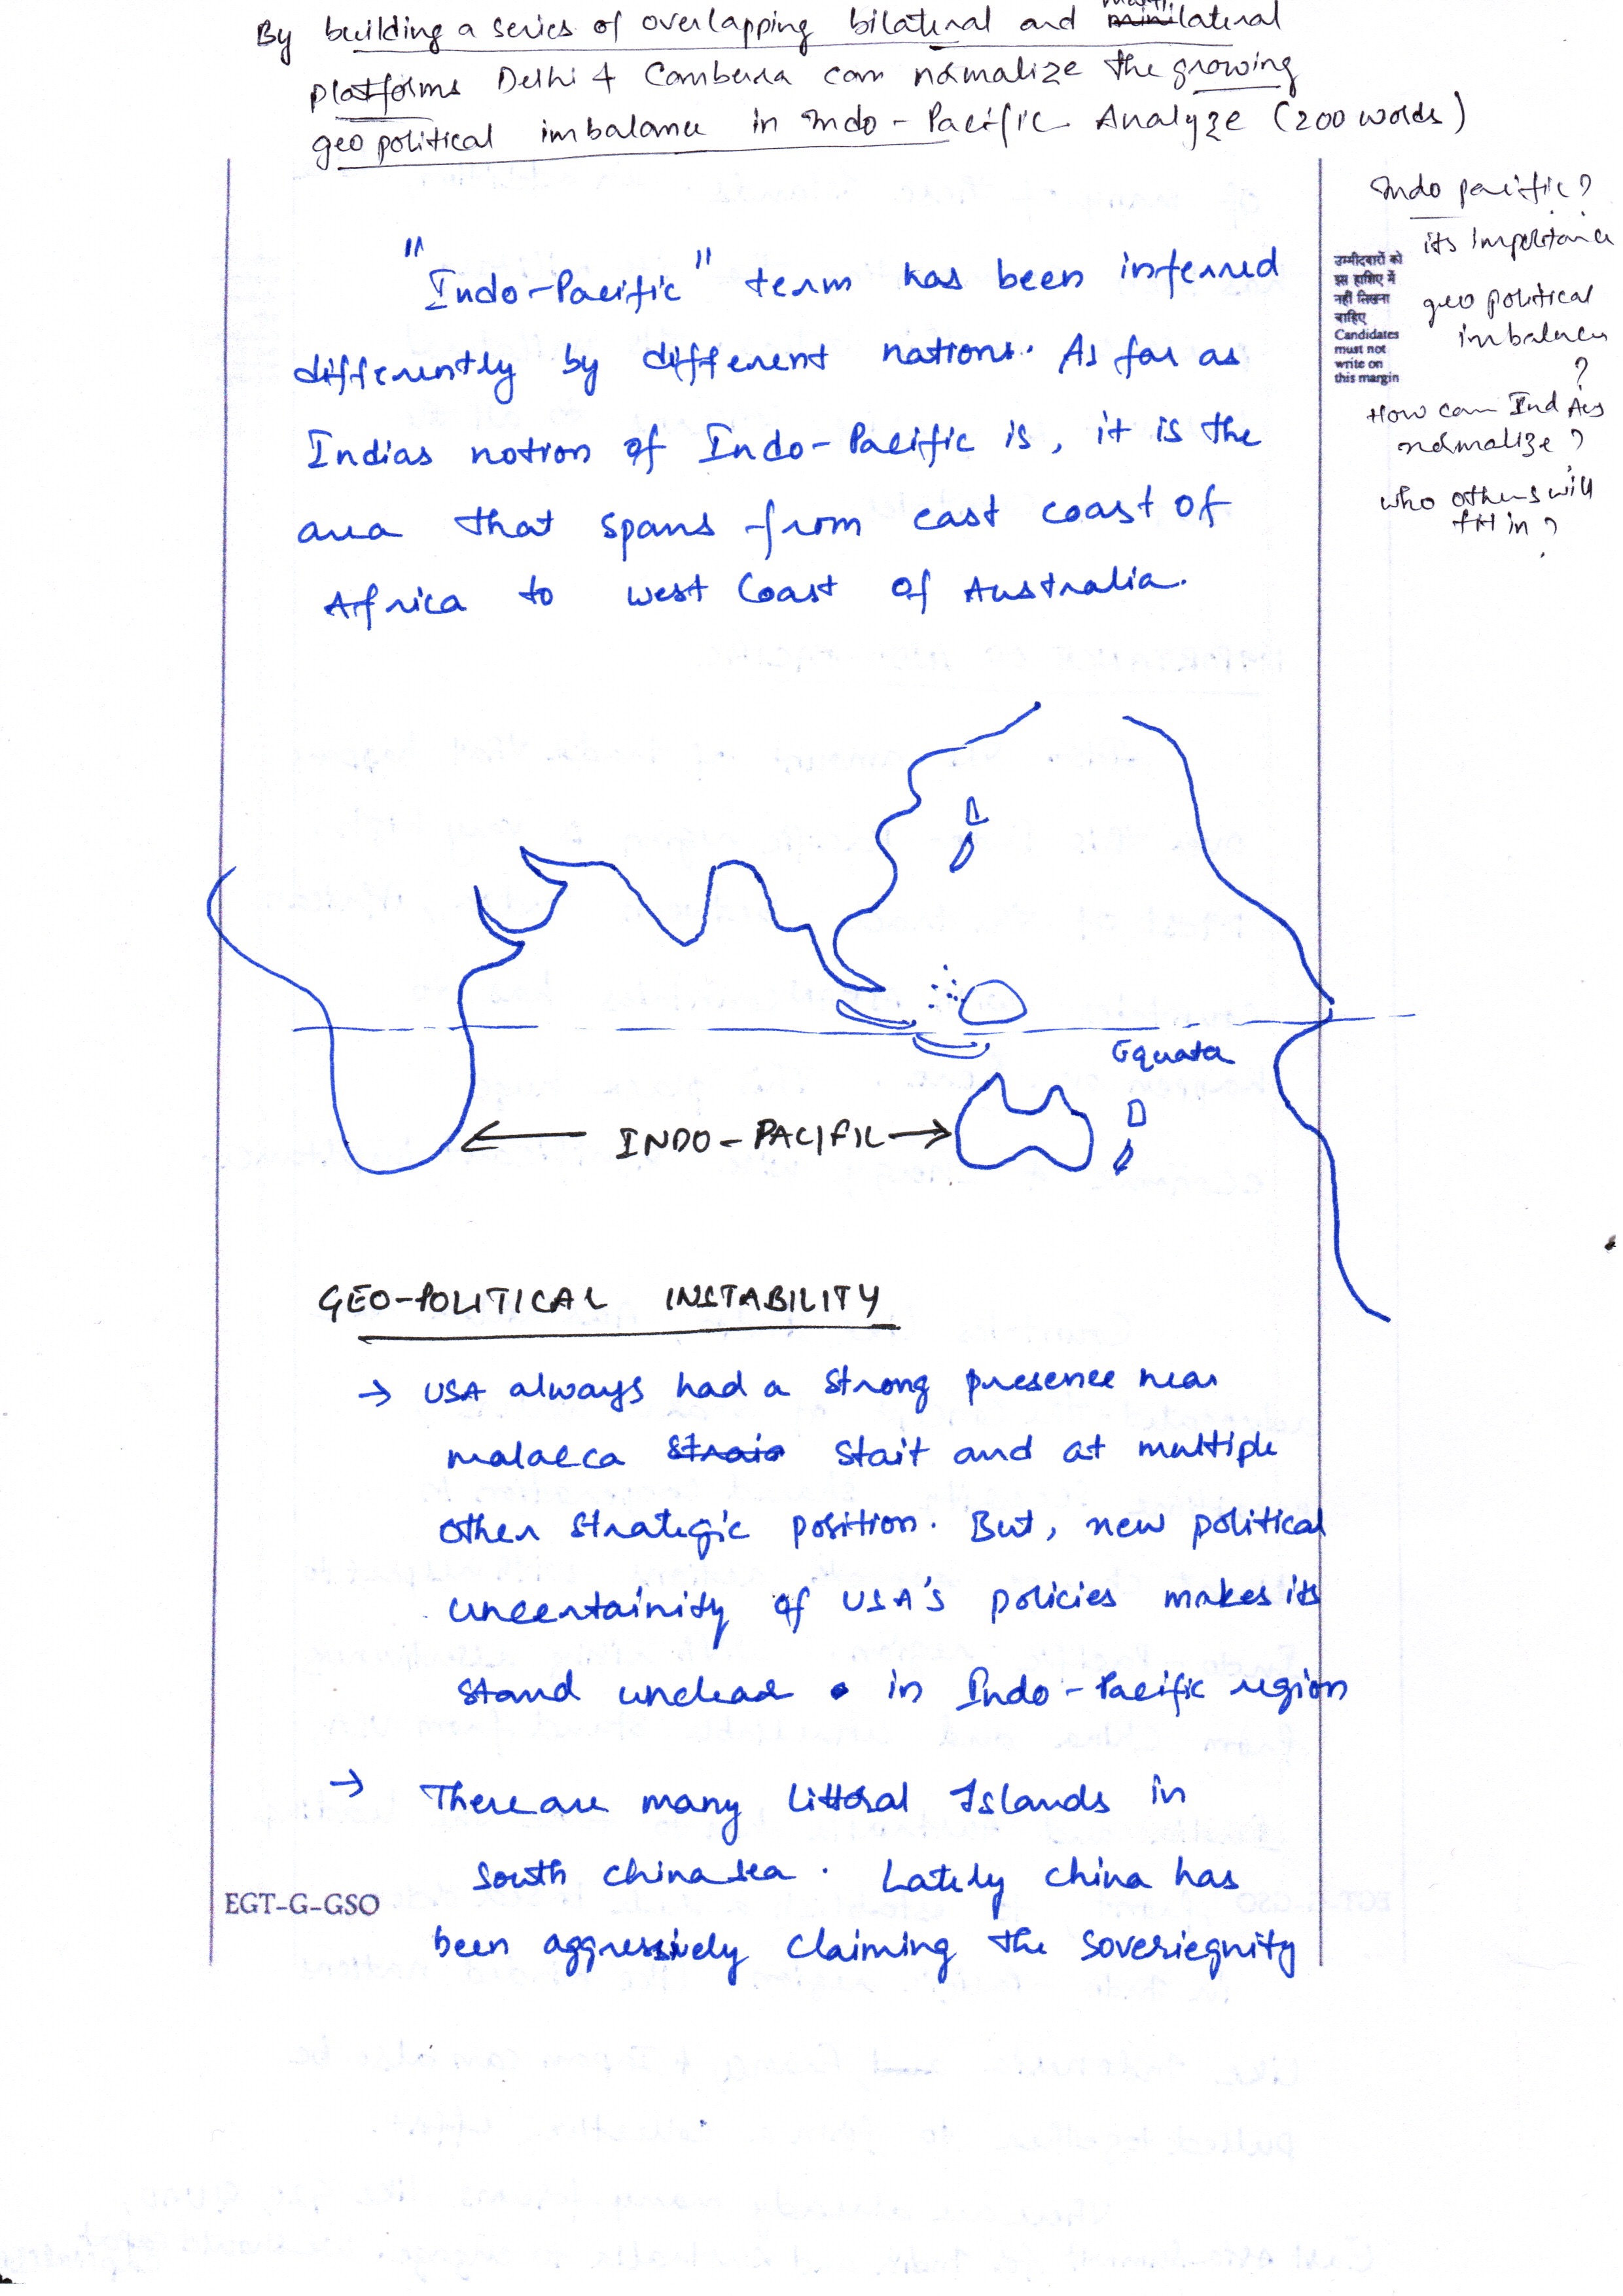 By building a series of overlapping bilateral and minilateral multi
platforms Delhi & Canberra can normalize the growing
geo political imbalance in Indo-Pacific Analyze (200 words)
Indo pacific?
its Importance
geo political
imbalance
?
How can Ind Aus
normalize?
who others will
fit in?
उम्मीदवारों को
इस हाशिए में
नहीं लिखना
चाहिए
Candidates
must not
write on
this margin
"Indo-Pacific" term has been inferred
differently by different nations. As far as
Indias notion of Indo-Pacific is, it is the
area that spans from east coast of
Africa to west Coast of Australia.
Equator
INDO-PACIFIC
GEO-POLITICAL INSTABILITY
→ USA always had a strong presence near
malacca Strais Stait and at multiple
other strategic position. But, new political
uncertainity of USA's policies makes its
stand unclear in Indo-Pacific region
→ There are many littoral Islands in
South china sea. Lately china has
been aggressively claiming the soveriegnity
EGT-G-GSO